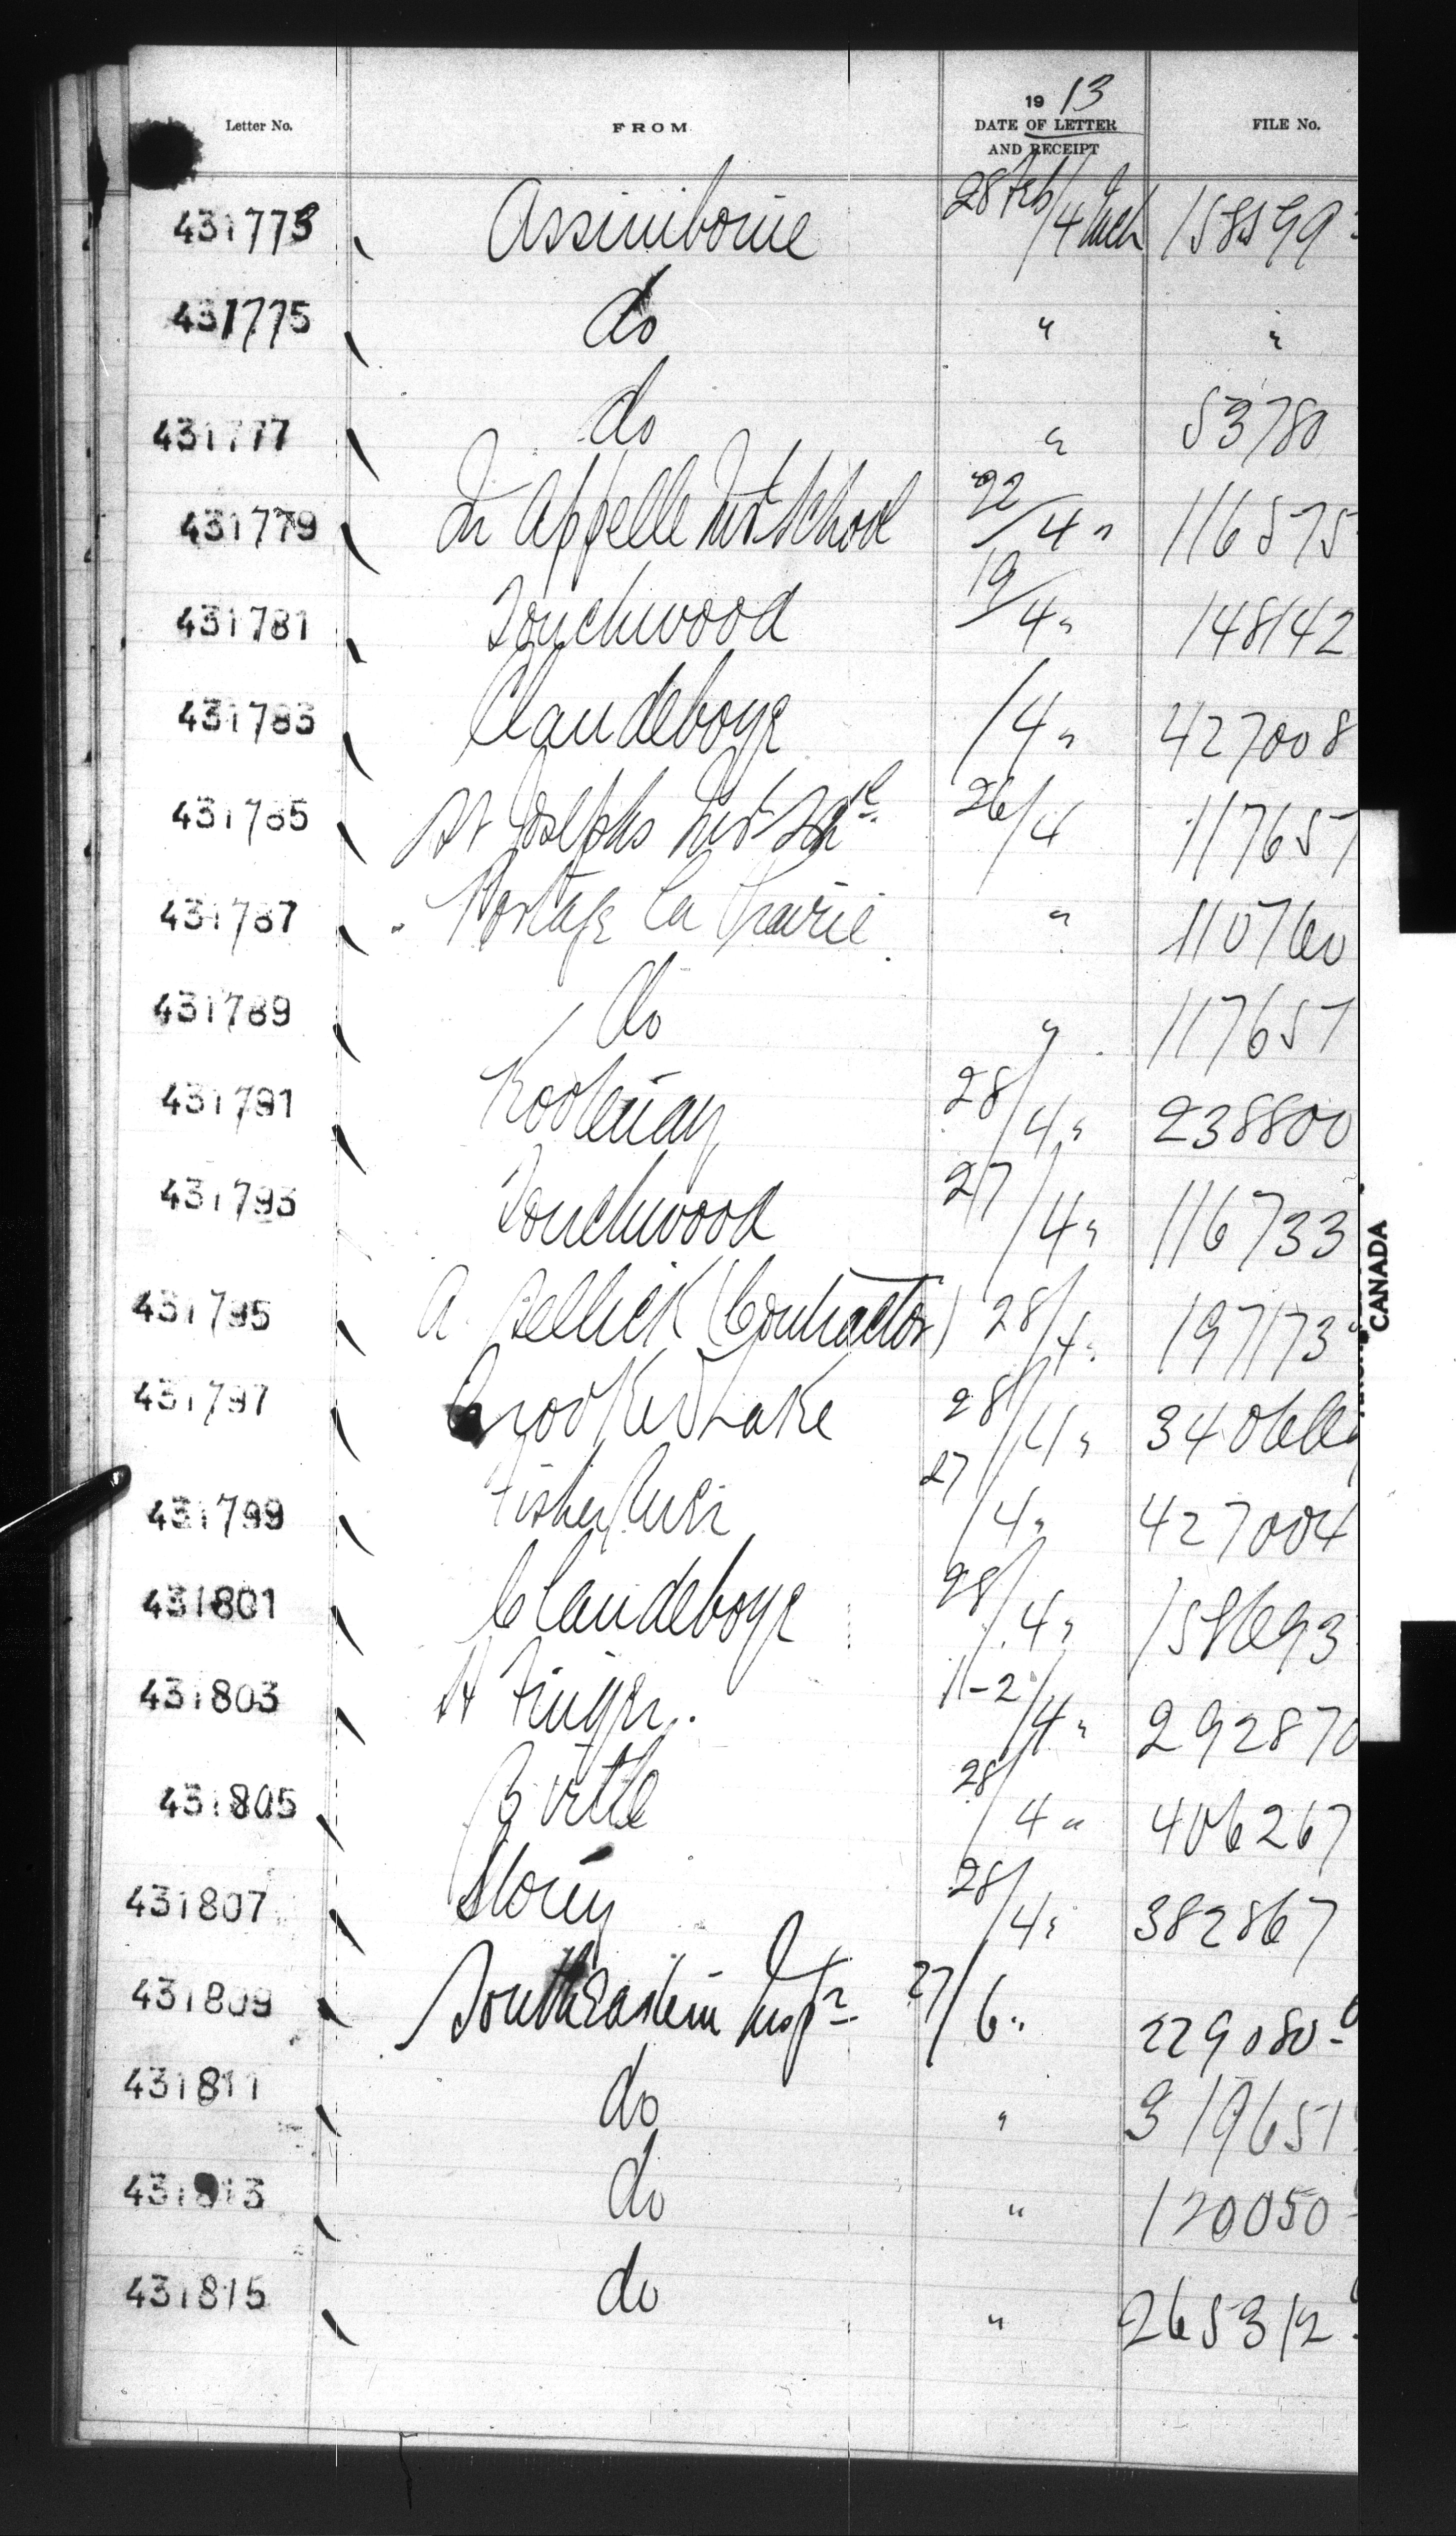 Letter No. FROM 19 13 DATE OF LETTER AND RECEIPT FILE No.
431773 Assiniboine 28 Feb/4 Mch 158599
431775 do " "
431777 do " 53780
431779 Qu Appelle Ind School 22/4 " 116575
431781 Touchwood 19/4 " 148142
431783 Clandeboye /4 " 427008
431785 St Josephs Ind Sch 26/4 117657
431787 Portage la Prairie " 110760
431789 do " 117657
431791 Kootenay 28/4 " 238800
431793 Touchwood 27/4 " 116733
431795 A. (Contractor) 28/4 " 197173
431797 Crooked Lake 28/4 "
431799 Fisher River 27/4 " 427004
431801 Clandeboye 28/4 " 158693
431803 H Finger. 11-2/4 " 292870
431805 Birtle 28/4 " 406267
431807 Morley 28/4 " 382867
431809 SouthEastern Inspr 27/6 " 229080-
431811 do " 319651
431813 do " 120050
431815 do " 265312
CANADA